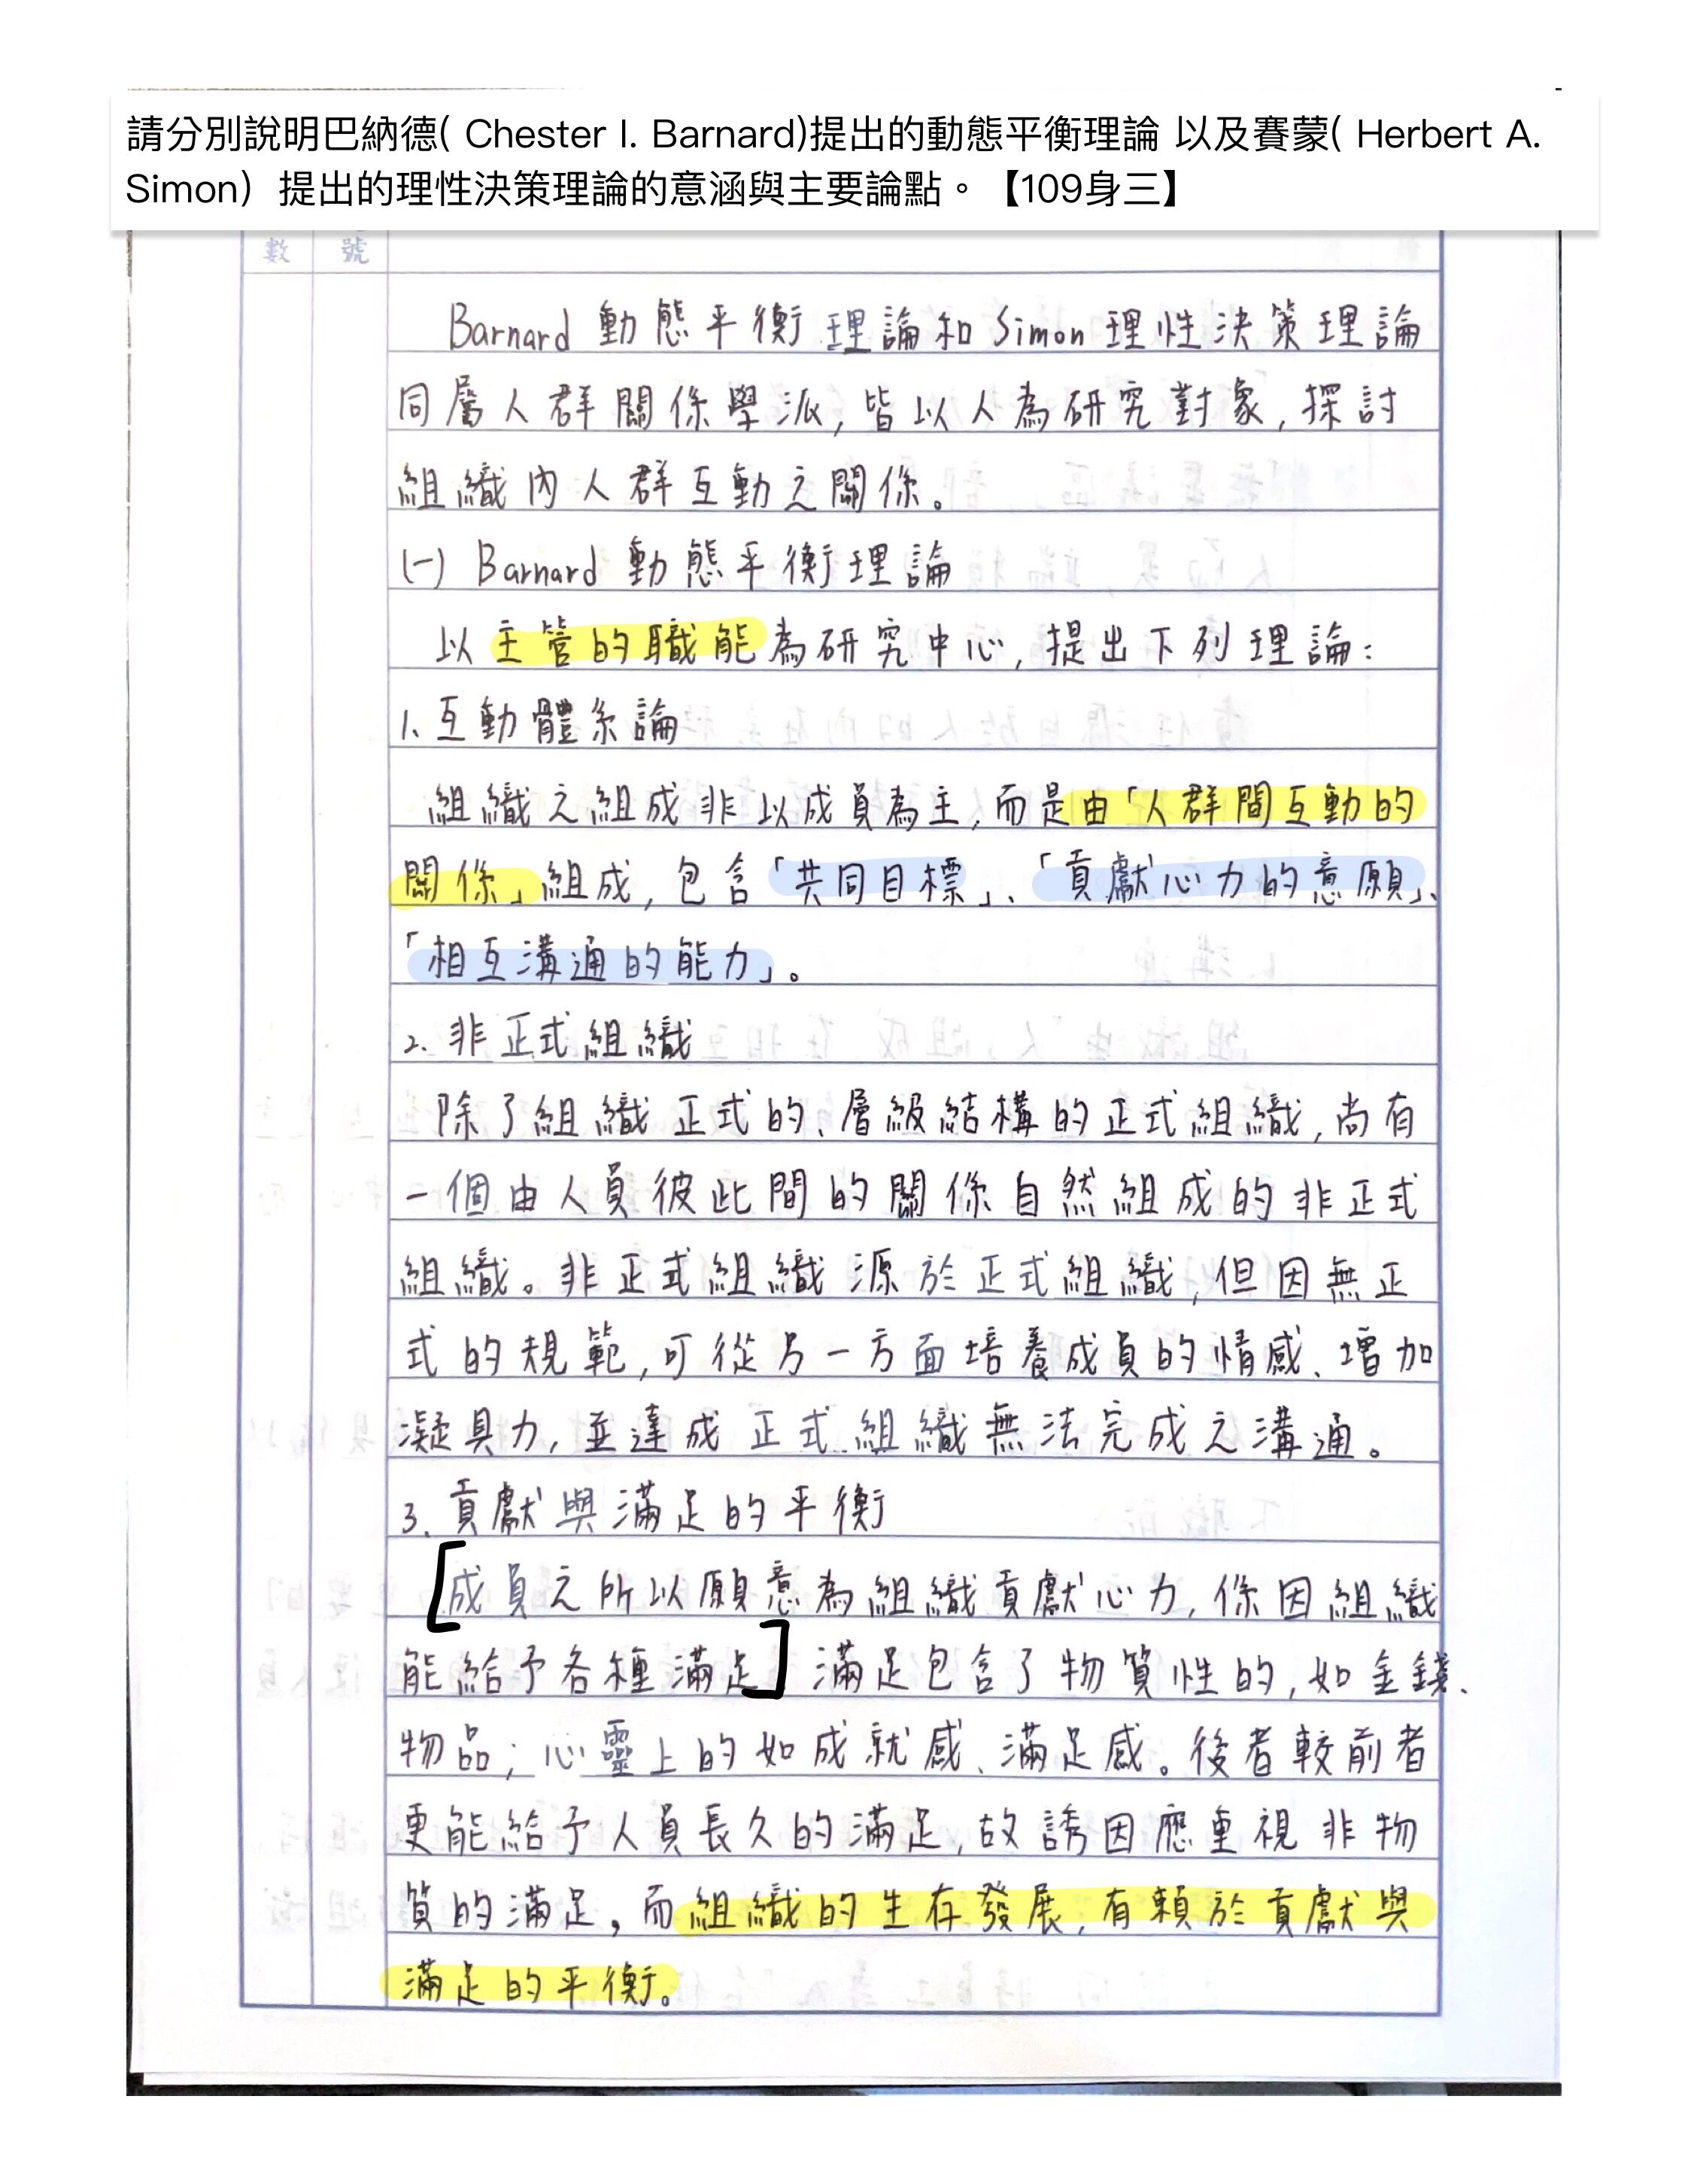 請分別說明巴納德( Chester I. Barnard)提出的動態平衡理論 以及賽蒙( Herbert A.
Simon）提出的理性決策理論的意涵與主要論點。【109身三】
數 號
Barnard 動態平衡理論和Simon理性決策理論
同屬人群關係學派,皆以人為研究對象,探討
組織內人群互動之關係。
(一) Barnard 動態平衡理論
以主管的職能為研究中心,提出下列理論:
1.互動體系論
組織之組成非以成員為主,而是由「人群間互動的
關係」組成,包含「共同目標」、「貢獻心力的意願」、
「相互溝通的能力」。
2.非正式組織
除了組織正式的、層級結構的正式組織,尚有
一個由人員彼此間的關係自然組成的非正式
組織。非正式組織源於正式組織,但因無正
式的規範,可從另一方面培養成員的情感、增加
凝具力,並達成正式組織無法完成之溝通。
3.貢獻與滿足的平衡
[成員之所以願意為組織貢獻心力,係因組織
能給予各種滿足]滿足包含了物質性的,如金錢、
物品;心靈上的如成就感、滿足感。後者較前者
更能給予人員長久的滿足,故誘因應重視非物
質的滿足,而組織的生存發展,有賴於貢獻與
滿足的平衡。